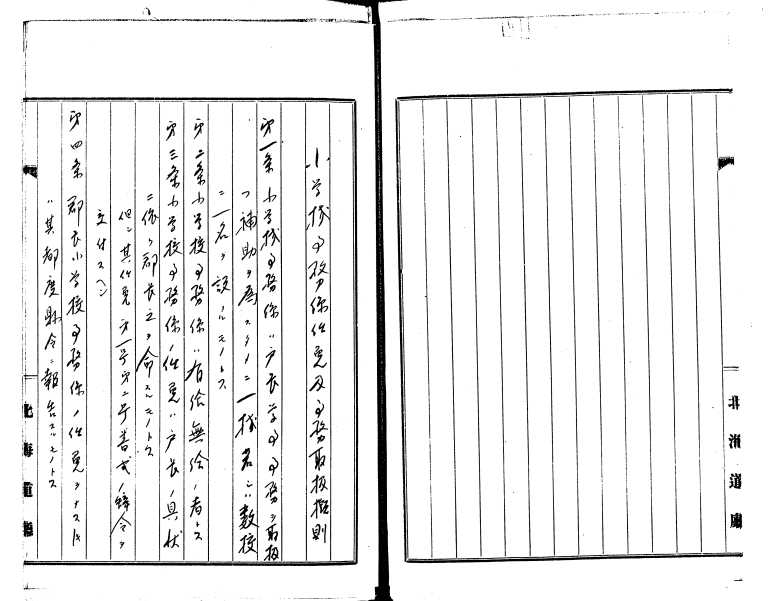 小学校事務係任免及事務取扱概則
第一条 小学校事務係ハ戸長学事事務ヲ取扱
フ補助ヲ為スタメニ一校若シハ数校
ニ一名ヲ設ルモノトス
第二条 小学校事務係ハ有給無給ノ者トス
第三条 小学校事務係ノ任免ハ戸長ノ具状
ニ依リ郡長之ヲ命スルモノトス
但シ其任免第一号第二号書式ノ辞令ヲ
交付スヘシ
第四条 郡長小学校事務係ノ任免ヲナストキ
ハ其都度県令ニ報告スルモノトス
北海道庁